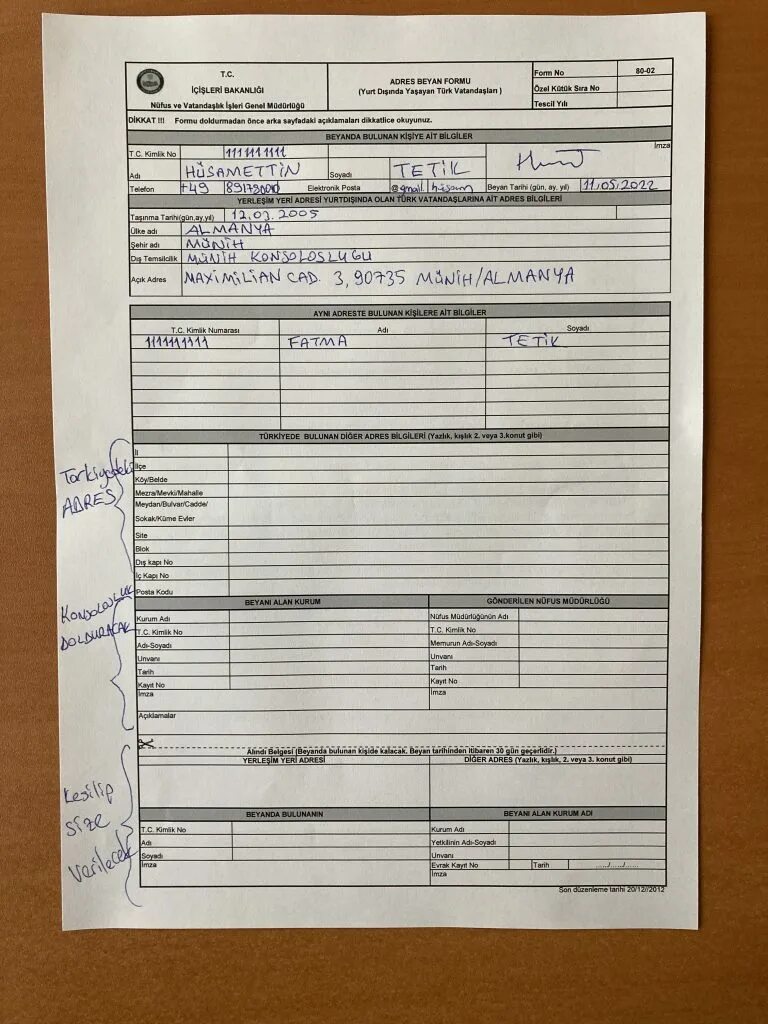 T.C.
İÇİŞLERİ BAKANLIĞI
Nüfus ve Vatandaşlık İşleri Genel Müdürlüğü
ADRES BEYAN FORMU
(Yurt Dışında Yaşayan Türk Vatandaşları )
Form No 80-02
Özel Kütük Sıra No
Tescil Yılı
DİKKAT !!! Formu doldurmadan önce arka sayfadaki açıklamaları dikkatlice okuyunuz.
BEYANDA BULUNAN KİŞİYE AİT BİLGİLER
T.C. Kimlik No 1111111111 İmza
Adı HÜSAMETTİN Soyadı TETİK
Telefon +49 Elektronik Posta @gmail. Beyan Tarihi (gün, ay, yıl) 11.05.2022
YERLEŞİM YERİ ADRESİ YURTDIŞINDA OLAN TÜRK VATANDAŞLARINA AİT ADRES BİLGİLERİ
Taşınma Tarihi(gün,ay,yıl) 12.03.2005
Ülke adı ALMANYA
Şehir adı MÜNİH
Dış Temsilcilik MÜNİH KONSOLOSLUGU
Açık Adres MAXIMILIAN CAD. 3, 90735 MÜNİH/ALMANYA
AYNI ADRESTE BULUNAN KİŞİLERE AİT BİLGİLER
T.C. Kimlik Numarası Adı Soyadı
1111111111 FATMA TETİK
TÜRKİYEDE BULUNAN DİĞER ADRES BİLGİLERİ (Yazlık, kışlık 2. veya 3.konut gibi)
Türkiyedeki
ADRES
İl
İlçe
Köy/Belde
Mezra/Mevki/Mahalle
Meydan/Bulvar/Cadde/
Sokak/Küme Evler
Site
Blok
Dış kapı No
İç Kapı No
Posta Kodu
KONSOLOSLUK
DOLDURACAK
BEYANI ALAN KURUM
Kurum Adı
T.C. Kimlik No
Adı-Soyadı
Unvanı
Tarih
Kayıt No
İmza
GÖNDERİLEN NÜFUS MÜDÜRLÜĞÜ
Nüfus Müdürlüğünün Adı
T.C. Kimlik No
Memurun Adı-Soyadı
Unvanı
Tarih
Kayıt No
İmza
Açıklamalar
Alındı Belgesi (Beyanda bulunan kişide kalacak. Beyan tarihinden itibaren 30 gün geçerlidir.)
YERLEŞİM YERİ ADRESİ DİĞER ADRES (Yazlık, kışlık, 2. veya 3. konut gibi)
Kesilip
size
verilecek
BEYANDA BULUNANIN
T.C. Kimlik No
Adı
Soyadı
İmza
BEYANI ALAN KURUM ADI
Kurum Adı
Yetkilinin Adı-Soyadı
Unvanı
Evrak Kayıt No Tarih …../…../…..
İmza
Son düzenleme tarihi 20/12//2012